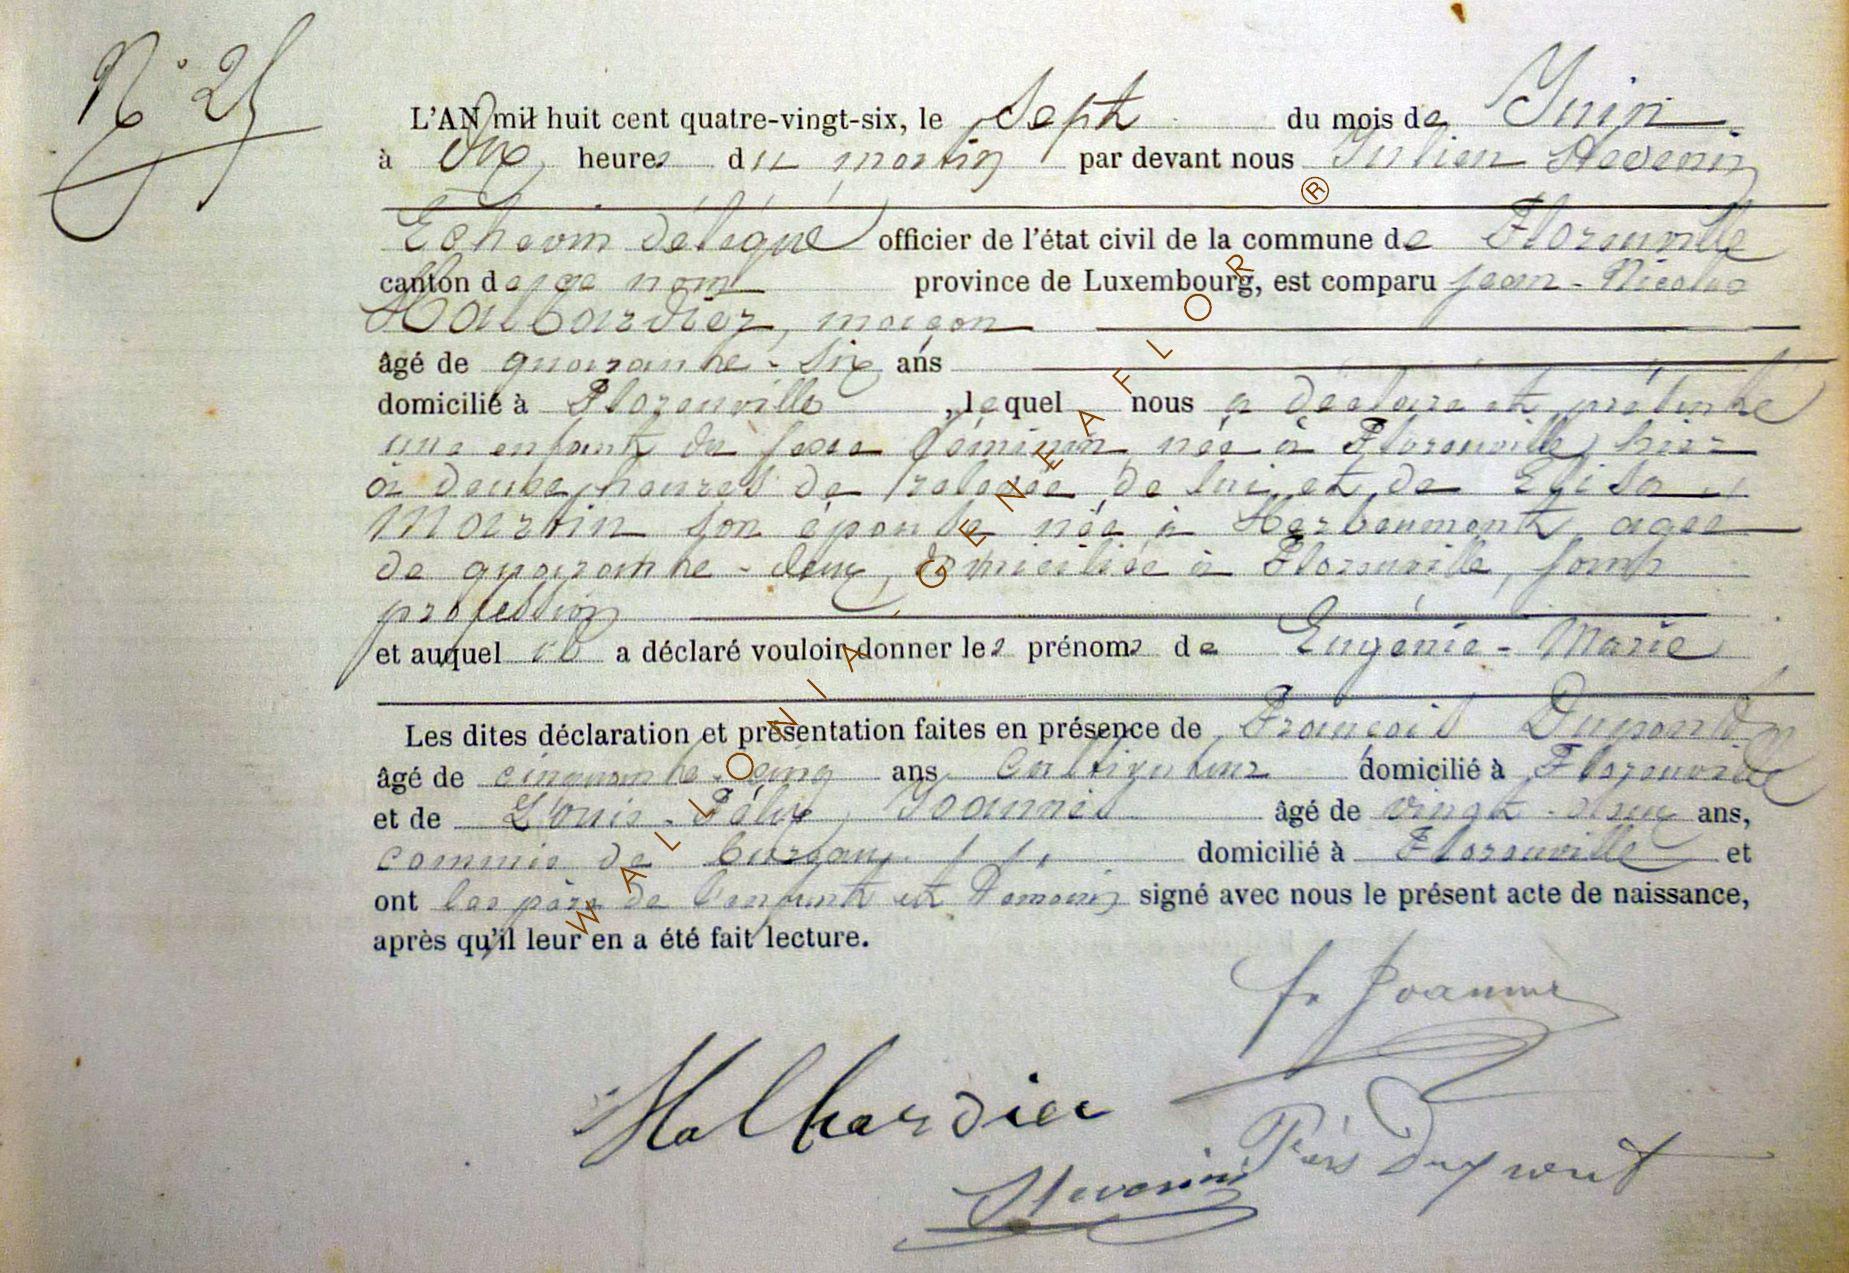 N° 25
L'AN mil huit cent quatre-vingt-six, le Sept du mois de Juin
à dix heures du matin par devant nous Julien
Echevin délégué officier de l'état civil de la commune de Florenville
canton de ce nom province de Luxembourg, est comparu Jean-Nicolas
Halbardier, maçon
âgé de quarante-six ans
domicilié à Florenville, lequel nous a déclaré et présenté
une enfant du sexe féminin née à Florenville, hier
à deux heures de relevée de lui et de Elisa
Martin son épouse née à Herbeumont, agée
de quarante-deux, domiciliée à Florenville, sans
profession
et auquel il a déclaré vouloir donner les prénoms de Eugénie-Marie
Les dites déclaration et présentation faites en présence de François Dupont
âgé de cinquante-cinq ans Cultivateur domicilié à Florenville
et de Louis-Félix Joannès âgé de vingt-deux ans,
commis de bureau domicilié à Florenville et
ont les père de l'enfant et témoins signé avec nous le présent acte de naissance,
après qu'il leur en a été fait lecture.
Joannès
Halbardier
Dupont
WALLONIA, GENEAFLOR ®